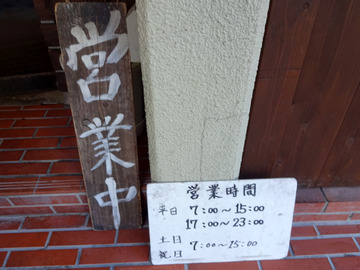 営業中
営業時間
平日 7:00～15:00
17:00～23:00
土日 7:00～15:00
祝日